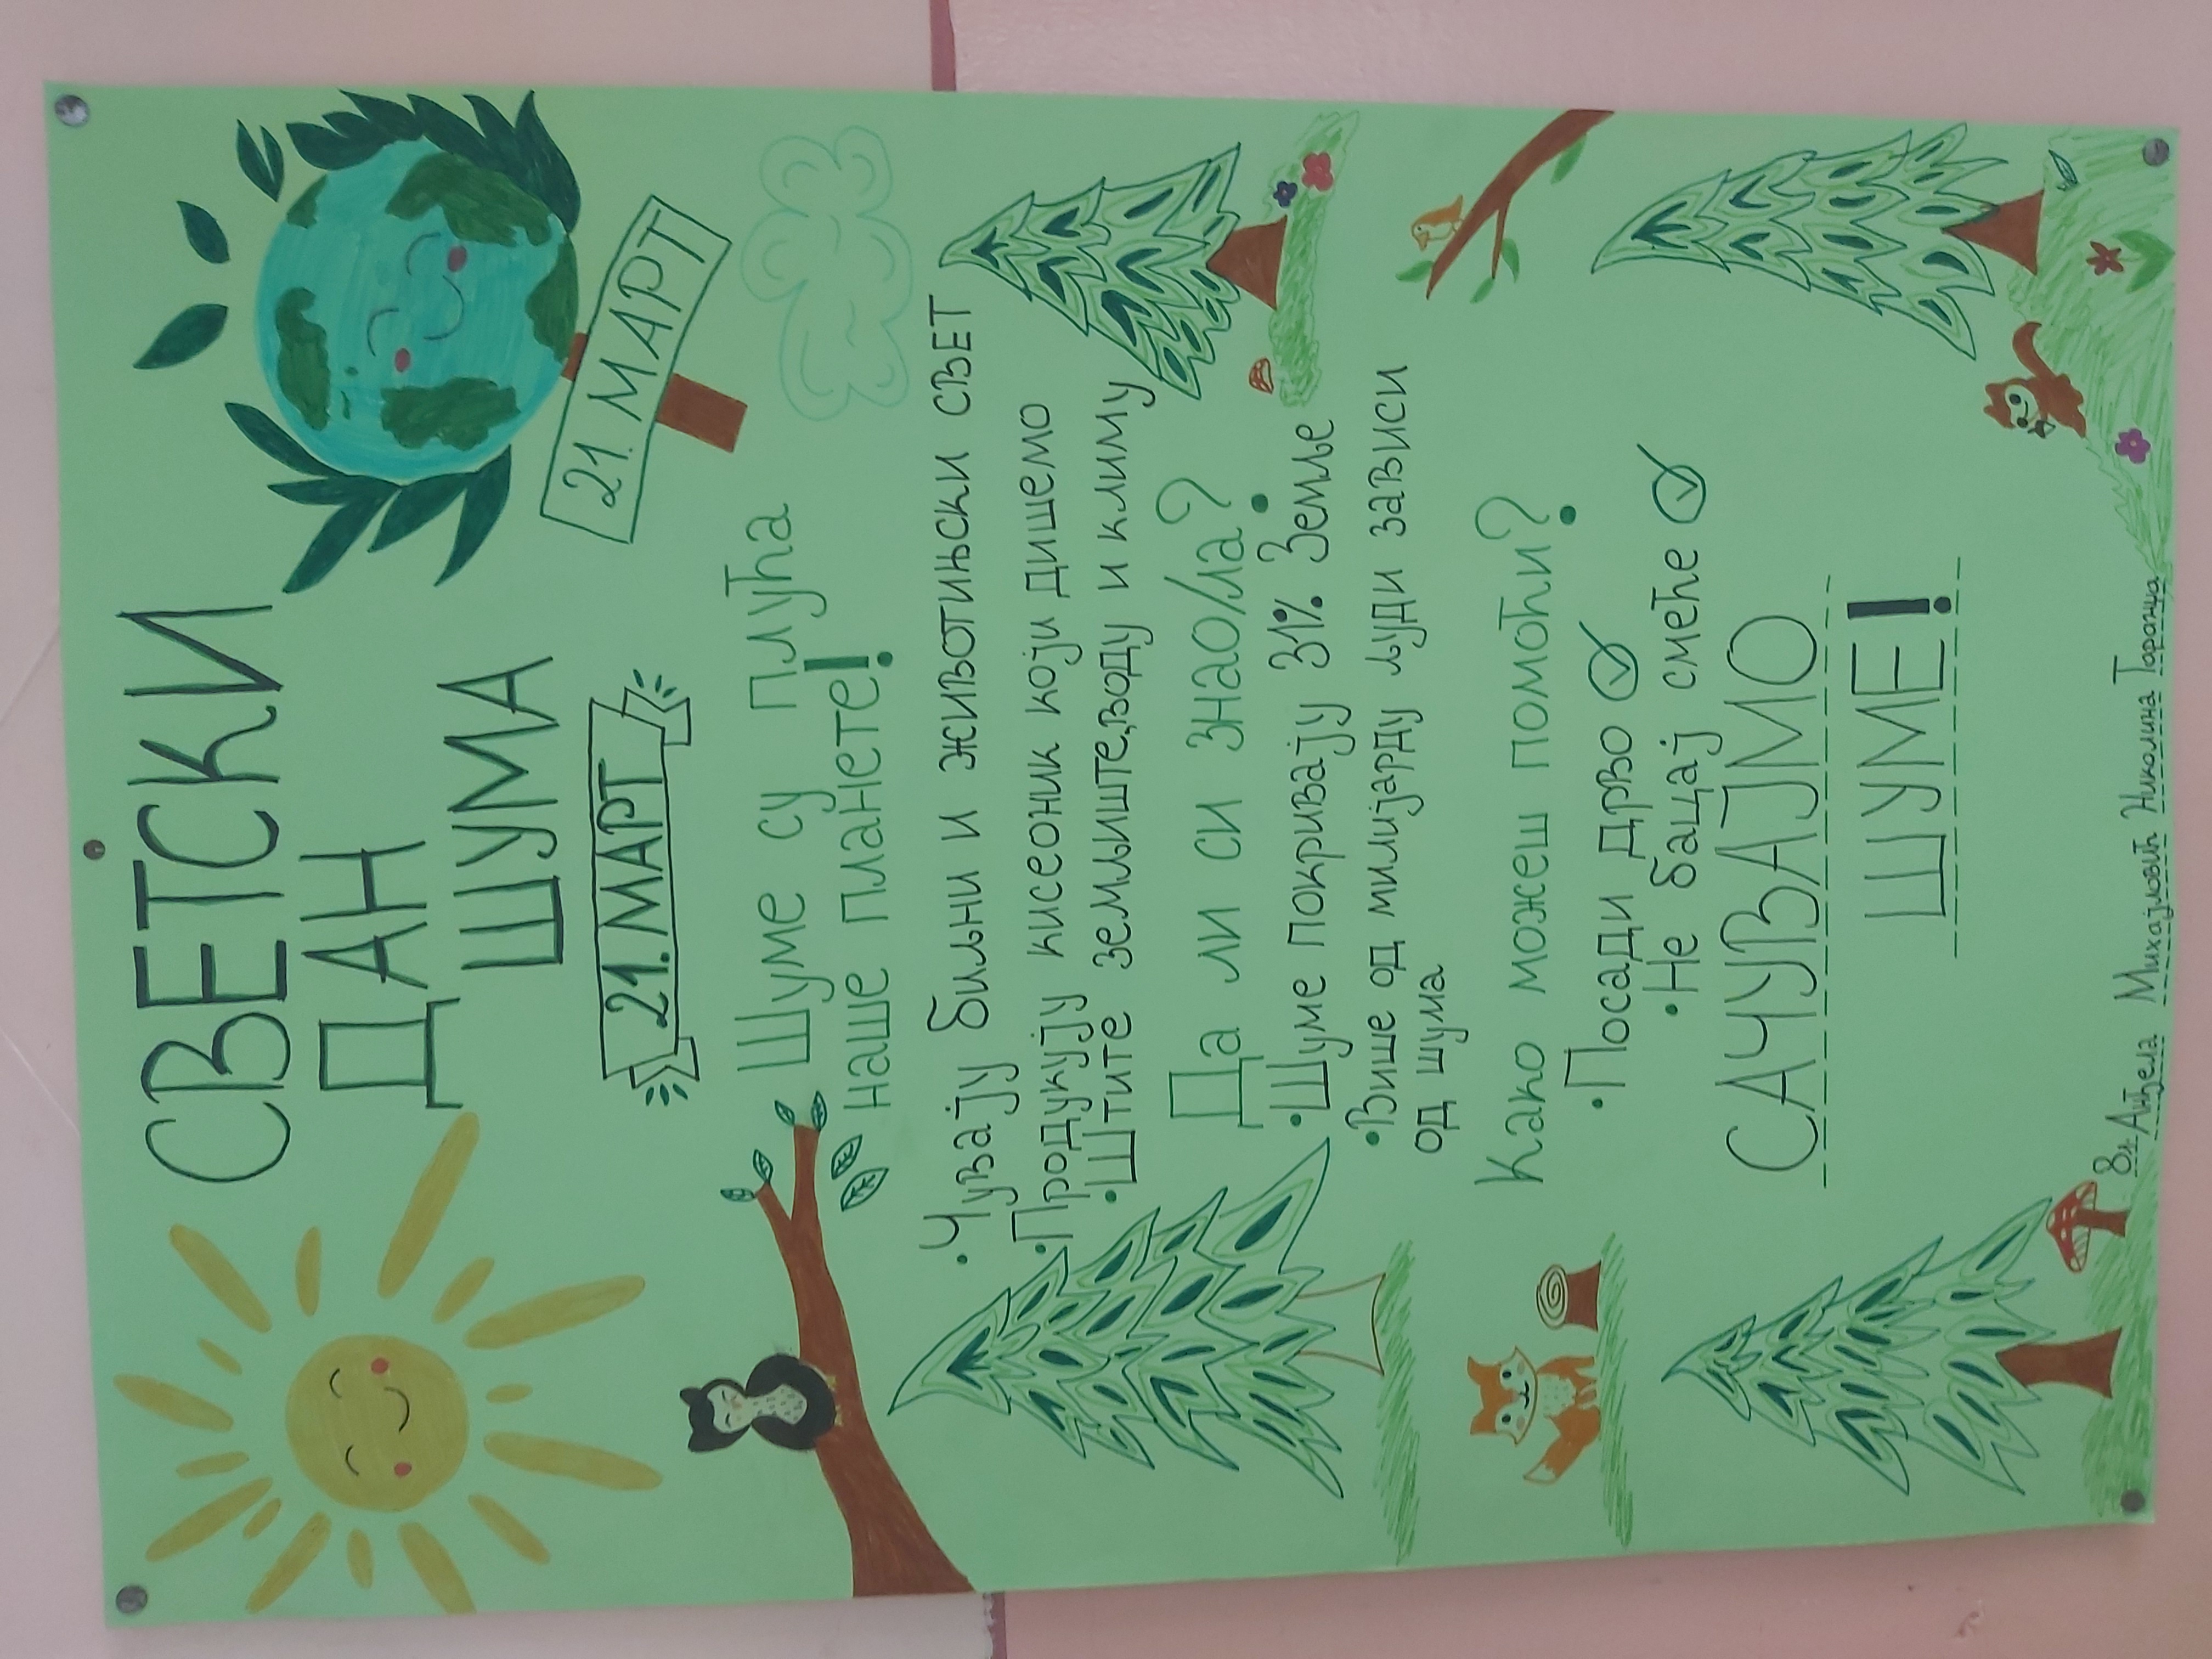 СВЕТСКИ
ДАН
ШУМА
21. МАРТ
21. МАРТ
Шуме су плућа
наше планете!
•Чувају биљни и животињски свет
•Продукују кисеоник који дишемо
•Штите земљиште,воду и климу
Да ли си знао/ла?
•Шуме покривају 31% Земље
•Више од милијарду људи зависи
од шума
Како можеш помоћи?
•Посади дрво
•Не бацај смеће
САЧУВАЈМО
ШУМЕ!
Анђела Михајловић Николина